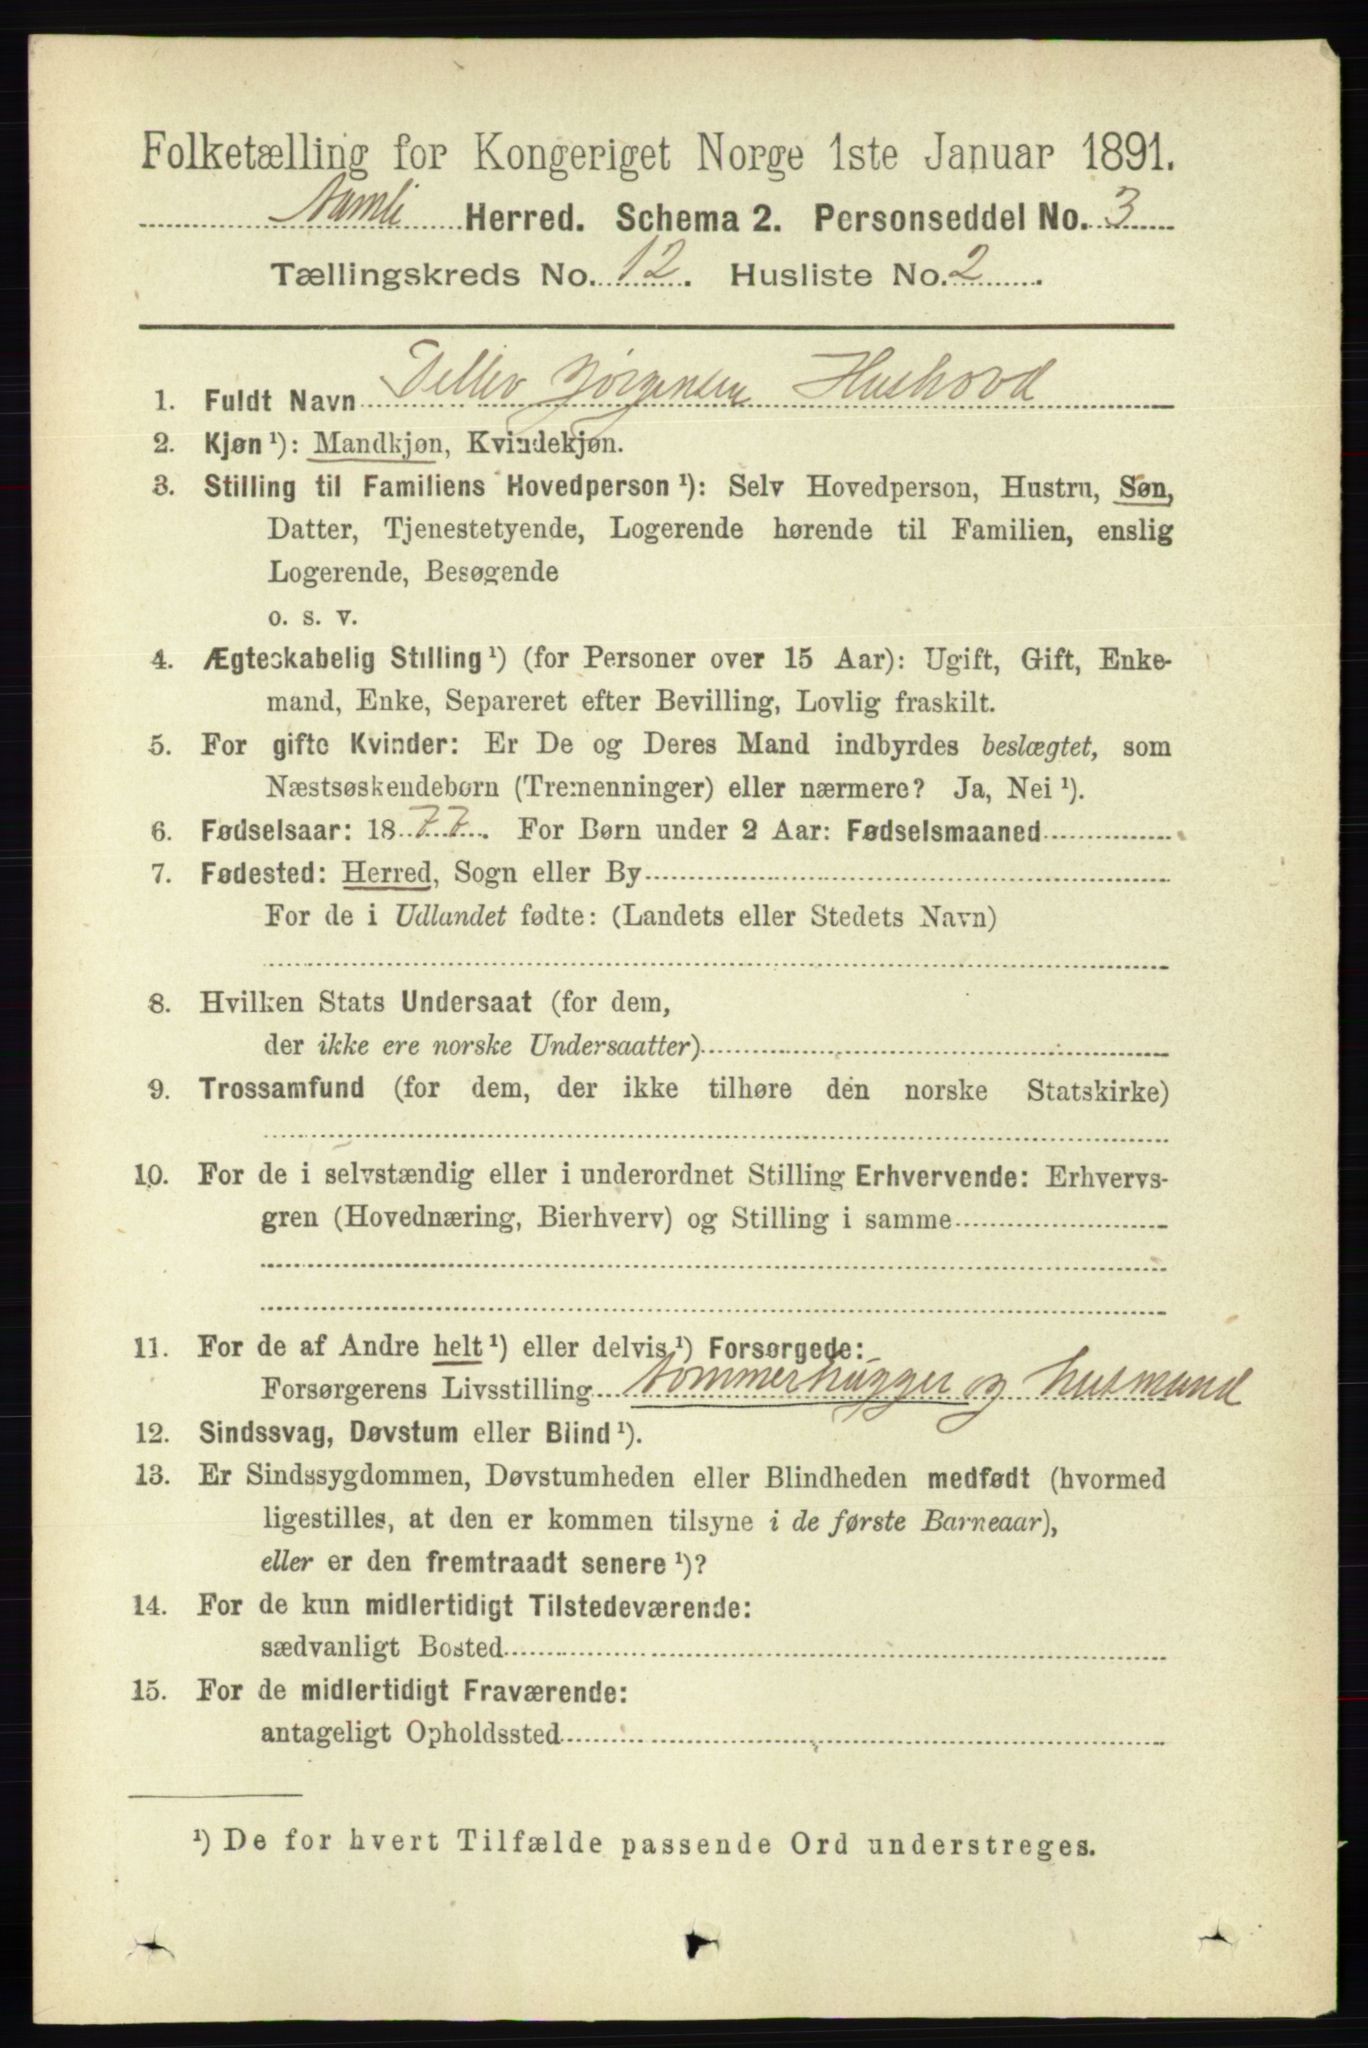 Folketælling for Kongeriget Norge 1ste Januar 1891.
Aamli Herred. Schema 2. Personseddel No. 3
Tællingskreds No. 12. Husliste No. 2.
1. Fuldt Navn Tellev Jørgensen Hushovd
2. Kjøn ¹): Mandkjøn, Kvindekjøn.
3. Stilling til Familiens Hovedperson ¹): Selv Hovedperson, Hustru, Søn,
Datter, Tjenestetyende, Logerende hørende til Familien, enslig
Logerende, Besøgende
o. s. v.
4. Ægteskabelig Stilling ¹) (for Personer over 15 Aar): Ugift, Gift, Enke-
mand, Enke, Separeret efter Bevilling, Lovlig fraskilt.
5. For gifte Kvinder: Er De og Deres Mand indbyrdes beslægtet, som
Næstsøskendebørn (Tremenninger) eller nærmere? Ja, Nei ¹).
6. Fødselsaar: 1877. For Børn under 2 Aar: Fødselsmaaned
7. Fødested: Herred, Sogn eller By
For de i Udlandet fødte: (Landets eller Stedets Navn)
8. Hvilken Stats Undersaat (for dem,
der ikke ere norske Undersaatter)
9. Trossamfund (for dem, der ikke tilhøre den norske Statskirke)
10. For de i selvstændig eller i underordnet Stilling Erhvervende: Erhvervs-
gren (Hovednæring, Bierhverv) og Stilling i samme
11. For de af Andre helt ¹) eller delvis ¹) Forsørgede:
Forsørgerens Livsstilling tommerhugger og husmand
12. Sindssvag, Døvstum eller Blind ¹).
13. Er Sindssygdommen, Døvstumheden eller Blindheden medfødt (hvormed
ligestilles, at den er kommen tilsyne i de første Barneaar),
eller er den fremtraadt senere ¹)?
14. For de kun midlertidigt Tilstedeværende:
sædvanligt Bosted
15. For de midlertidigt Fraværende:
antageligt Opholdssted
¹) De for hvert Tilfælde passende Ord understreges.